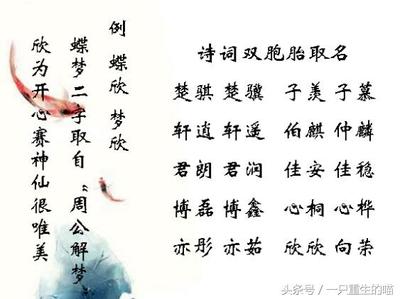 例 蝶欣 梦欣
蝶梦二字取自“周公解梦”
欣为开心赛神仙很唯美
诗词双胞胎取名
楚骐 楚骥 子羡 子慕
轩逍 轩遥 伯麒 仲麟
君朗 君润 佳安 佳稳
博磊 博鑫 心桐 心桦
亦彤 亦茹 欣欣 向荣
头条号 / 一只重生的喵